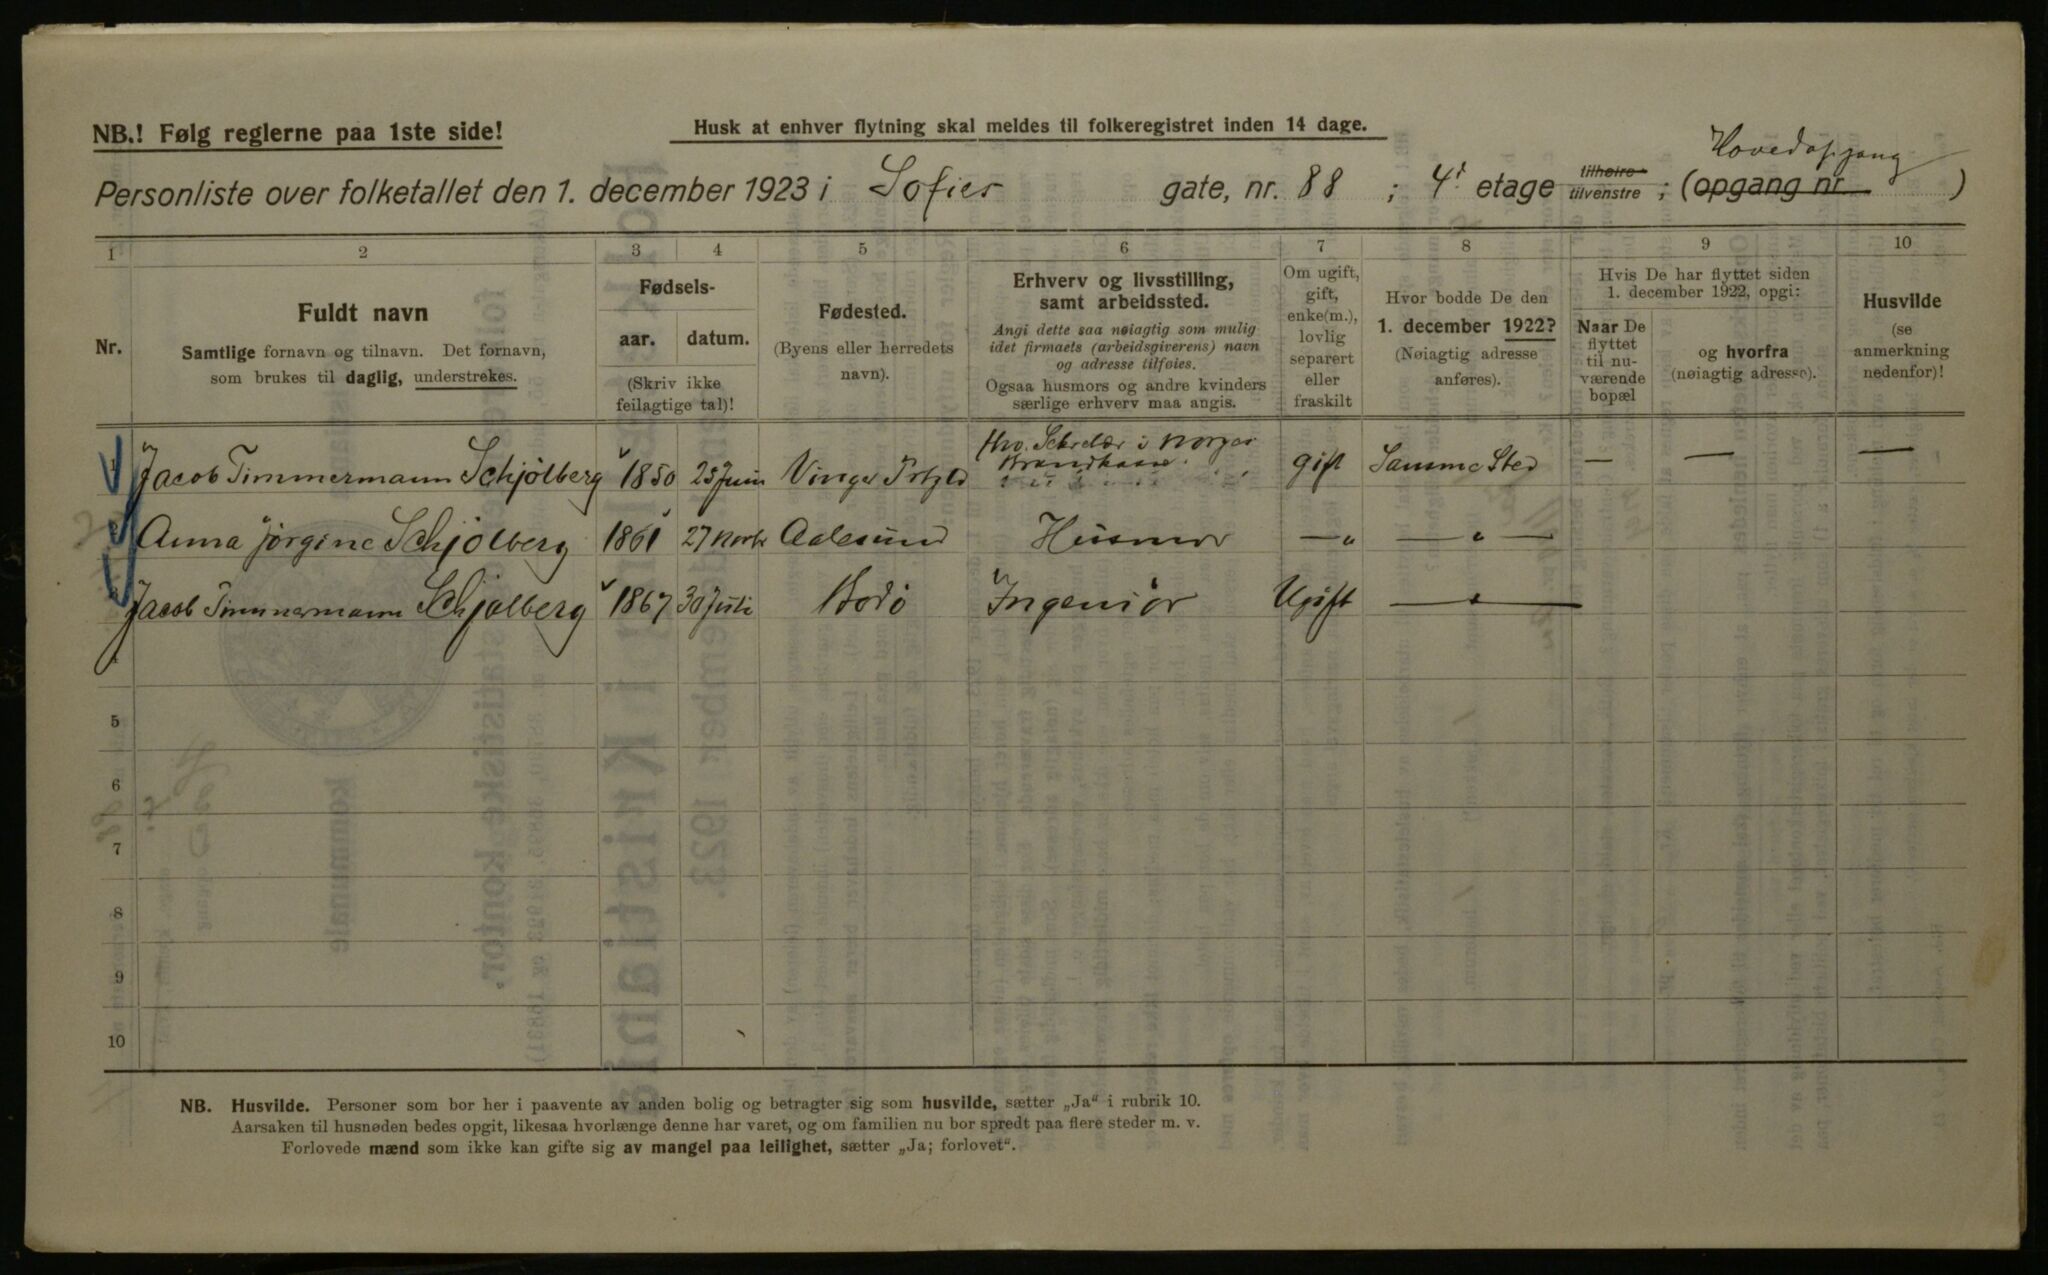 NB.! Følg reglerne paa 1ste side!
Husk at enhver flytning skal meldes til folkeregistret inden 14 dage.
Hovedopgang
Personliste over folketallet den 1. december 1923 i Sofies gate, nr. 88 ; 4' etage tilhøire tilvenstre ; (opgang nr. )
1 2 3 4 5 6 7 8 9 10
Nr.
Fuldt navn
Samtlige fornavn og tilnavn. Det fornavn,
som brukes til daglig, understrekes.
Fødsels-
aar. datum.
(Skriv ikke
feilagtige tal)!
Fødested.
(Byens eller herredets
navn).
Erhverv og livsstilling,
samt arbeidssted.
Angi dette saa nøiagtig som mulig
idet firmaets (arbeidsgiverens) navn
og adresse tilføies.
Ogsaa husmors og andre kvinders
særlige erhverv maa angis.
Om ugift,
gift,
enke(m.),
lovlig
separert
eller
fraskilt
Hvor bodde De den
1. december 1922?
(Nøiagtig adresse
anføres).
Hvis De har flyttet siden
1. december 1922, opgi:
Naar De
flyttet
til nu-
værende
bopæl
og hvorfra
(nøiagtig adresse).
Husvilde
(se
anmerkning
nedenfor)!
1 Jacob Timmermann Schjölberg 1850 25 Juni Vinger Prtgld fhv. Sekretær i Norges Brandkasse gift Samme Sted — — —
2 Anna Jørgine Schjölberg 1861 27 Novbr Aalesund Husmor —„ — „ —
3 Jacob Timmermann Schjølberg 1867 30 Juli Bodö Ingeniör Ugift — „ —
4
5
6
7
8
9
10
NB. Husvilde. Personer som bor her i paavente av anden bolig og betragter sig som husvilde, sætter „Ja“ i rubrik 10.
Aarsaken til husnøden bedes opgit, likesaa hvorlænge denne har varet, og om familien nu bor spredt paa flere steder m. v.
Forlovede mænd som ikke kan gifte sig av mangel paa leilighet, sætter „Ja; forlovet“.